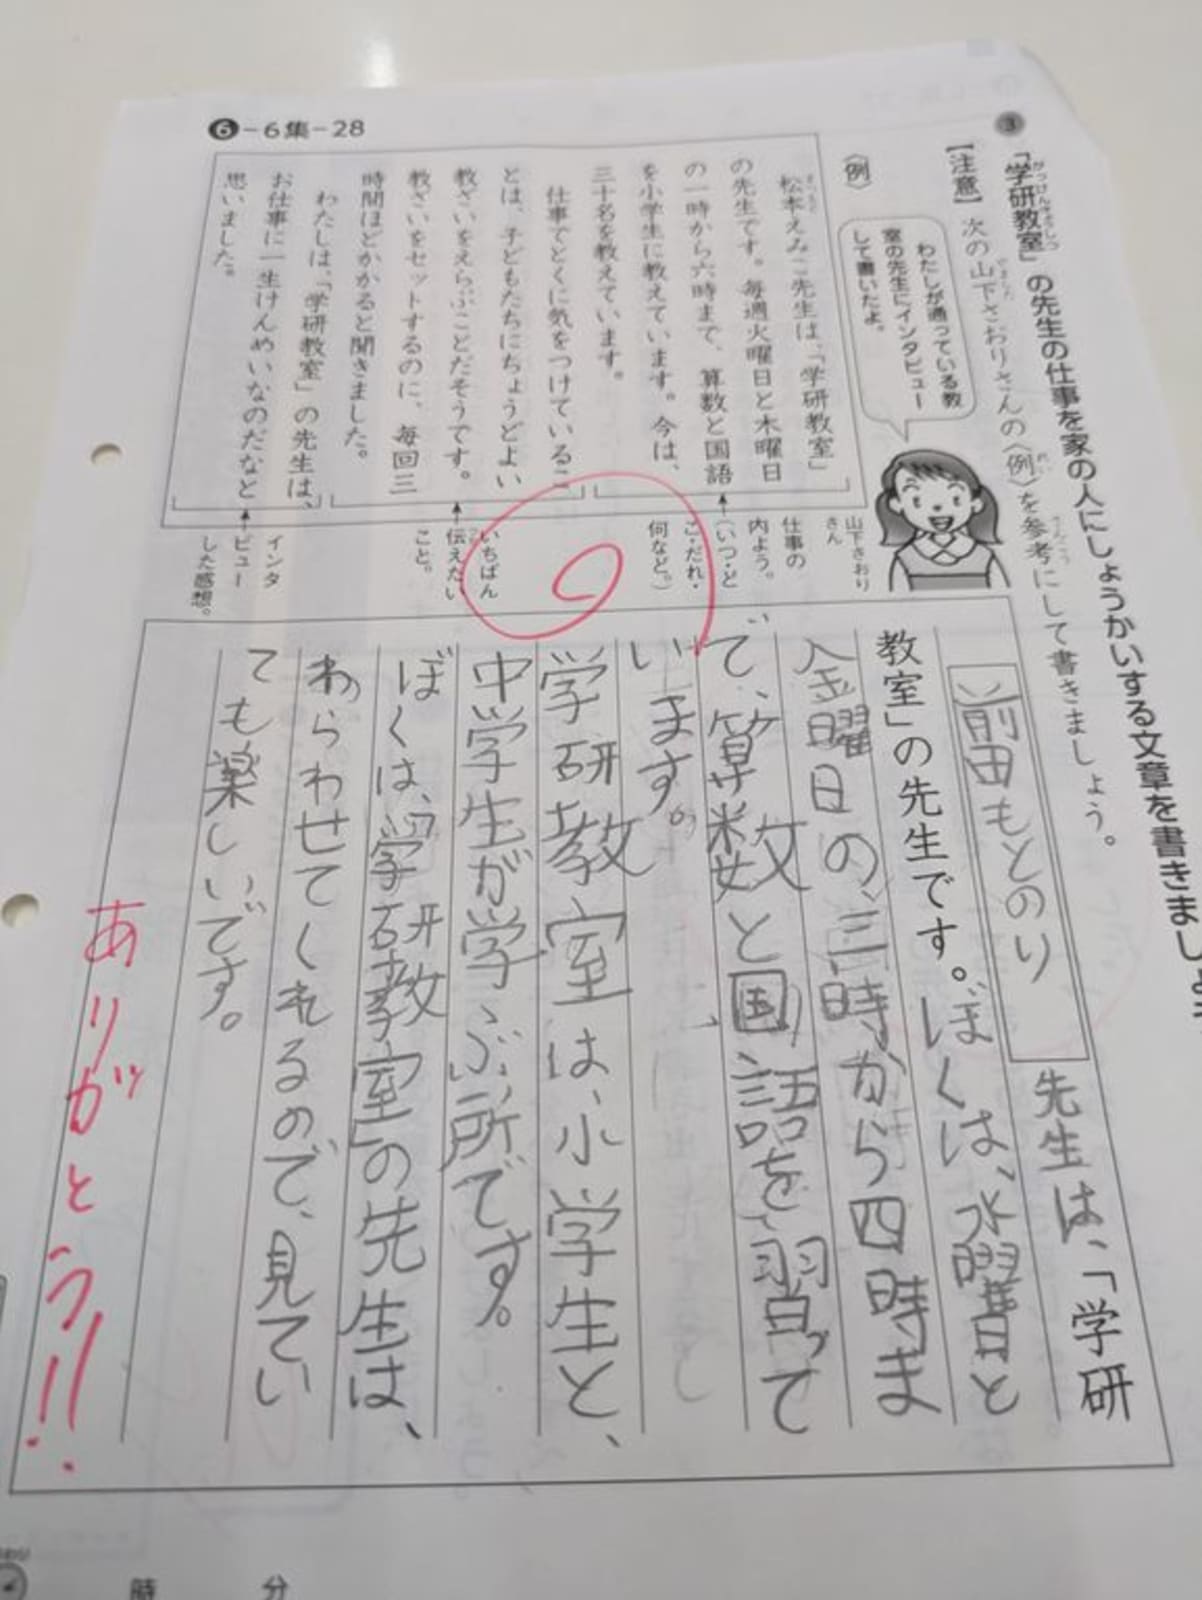 ❻-6集-28
③
「学研教室」の先生の仕事を家の人にしょうかいする文章を書きましょう
がっけんきょうしつ
【注意】次の山下さおりさんの〈例〉を参考にして書きましょう。
やました
れい
さんこう
〈例〉
わたしが通っている教
室の先生にインタビュー
して書いたよ。
山下さおり
さん
松本えみこ先生は、「学研教室」
まつもと
の先生です。毎週火曜日と木曜日
の一時から六時まで、算数と国語
を小学生に教えています。今は、
三十名を教えています。
仕事でとくに気をつけているこ
とは、子どもたちにちょうどよい
教ざいをえらぶことだそうです。
教ざいをセットするのに、毎回三
時間ほどかかると聞きました。
わたしは、「学研教室」の先生は、
お仕事に一生けんめいなのだなと
思いました。
仕事の
内よう。
(いつ・ど
こ・だれ・
何など。)
いちばん
伝えたい
こと。
インタ
ビュー
した感想。
前田もとのり
先生は、「学研
教室」の先生です。ぼくは、水曜日と
金曜日の、三時から四時ま
で、算数と国語を習って
います。
学研教室は、小学生と、
中学生が学ぶ所です。
ぼくは、「学研教室」の先生は、
わらわせてくれるので、見てい
ても楽しいです。
ありがとう!!
時 分